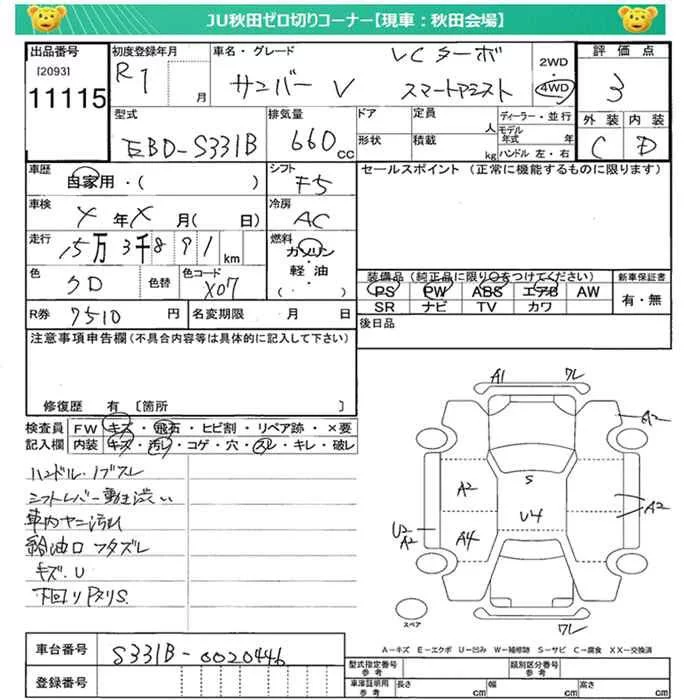 JU秋田ゼロ切りコーナー【現車：秋田会場】
出品番号 [2093] 11115
初度登録年月 R1 月
車名・グレード サンバーV VCターボ スマートアシスト
2WD 4WD
評価点 3
外装 C 内装 D
型式 EBD-S331B
排気量 660cc
ドア 形状
定員 人 積載 kg
ディーラー・並行
モデル年式 年
ハンドル 左・右
車歴 自家用・( )
シフト F5
セールスポイント (正常に機能するものに限ります)
車検 X年X月( 日)
冷房 AC
走行 15万3千891km
燃料 ガソリン 軽・油 ( ・ )
色 クロ 色替 色コード X07
装備品（純正品に限り○をつけてください） 新車保証書
PS PW ABS エアB AW 有・無
SR ナビ TV カワ
R券 7510円 名変期限 月 日
後日品
注意事項申告欄(不具合内容等は具体的に記入して下さい)
修復歴 有 〔箇所 〕
検査員記入欄
FW キズ・飛石・ヒビ割・リペア跡・×要
内装 キズ・汚レ・コゲ・穴・スレ・キレ・破レ
ハンドル・ノブスレ
シフトレバー動き渋い
車内ヤニ汚れ
給油口フタズレ
キズ.U
下回りPタリS.
A1 ワレ
A2
A2 S A2
U4
U2 A2 A4
スペア
ワレ
A−キズ E−エクボ U−凹み W−補修跡 S−サビ C−腐食 XX−交換済
車台番号 S331B-0020446
登録番号
型式指定番号 参考 類別区分番号 参考
車庫証明用 参考 長さ cm 幅 cm 高さ cm